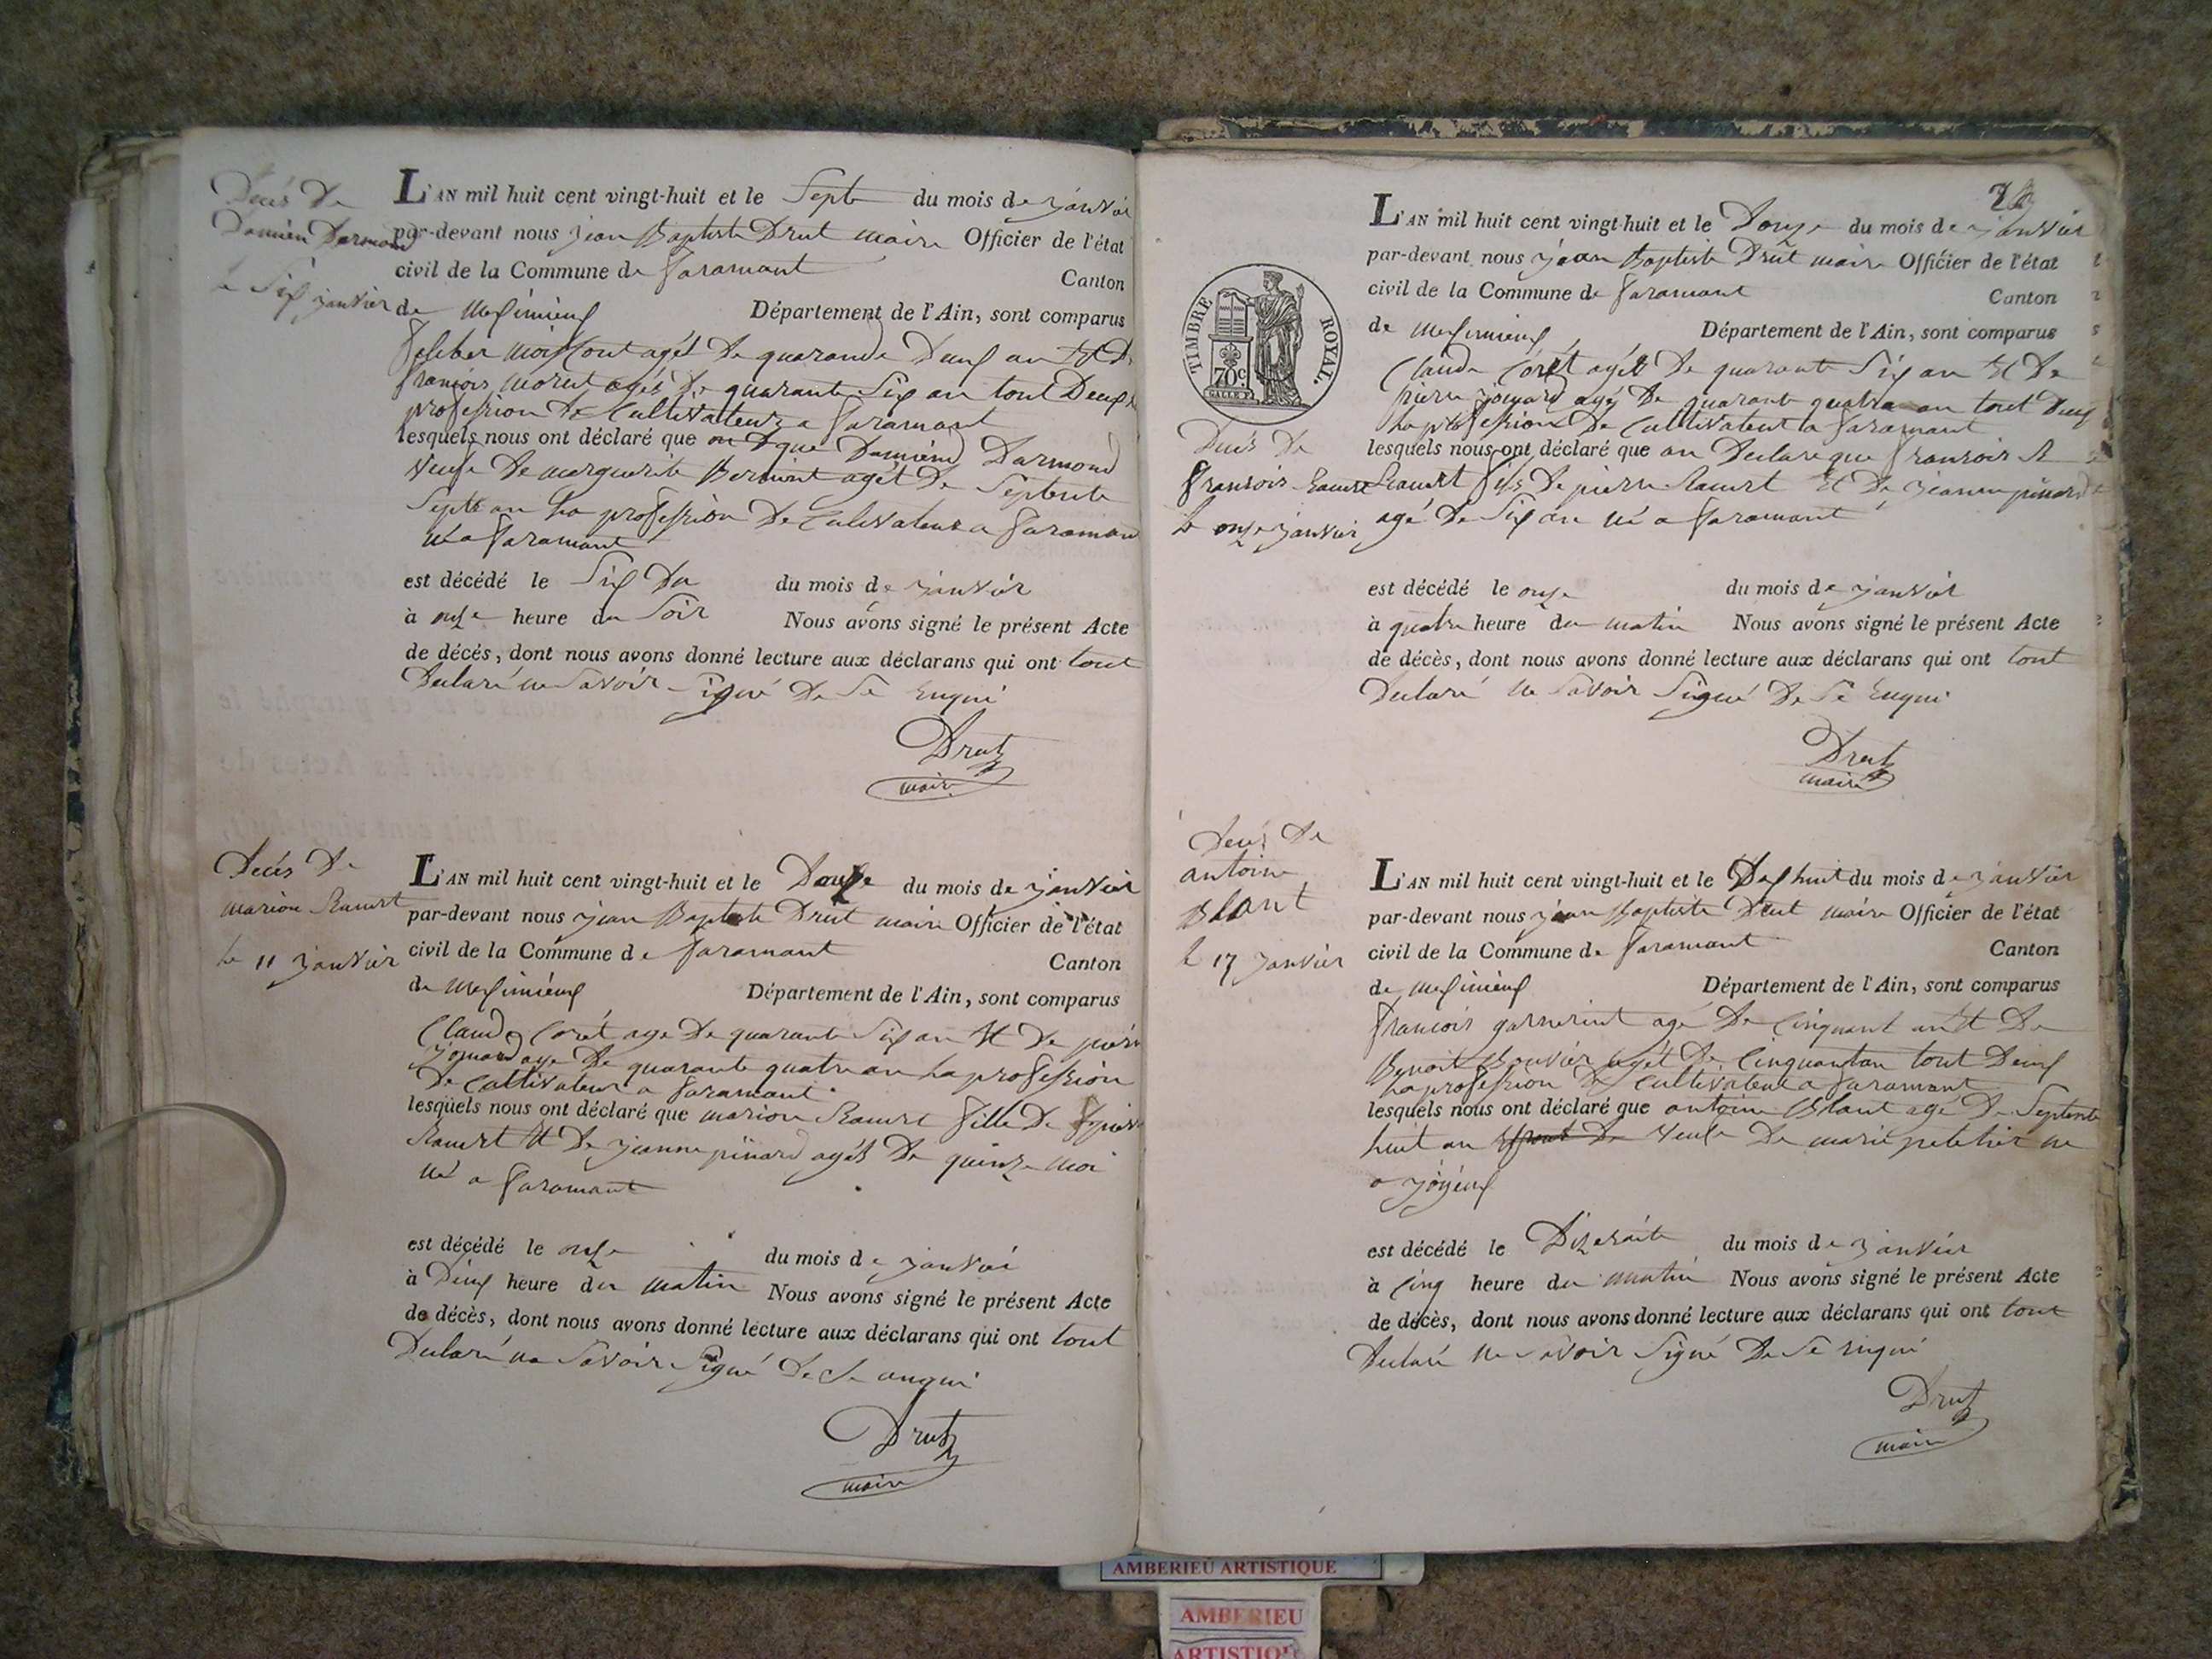 Decés De
Damien Darmond
le Six janvier
L'AN mil huit cent vingt-huit et le Sept du mois de janvier
par-devant nous jean Baptiste Drut maire Officier de l'état
civil de la Commune de faramant
Canton
de Meximieux Département de l'Ain, sont comparus
agét De quarande Deux an Et De
françois morut agés De quarante Six an tout Deux
profession De Cultivateur a faramant
lesquels nous ont déclaré que Damien Darmond
veufe De marguerite agét De Septente
Septe an La profession De Culivateur a faraman
né a faramant
est décédé le Six Du du mois de janvier
à onze heure du Soir Nous avons signé le présent Acte
de décés, dont nous avons donné lecture aux déclarans qui ont tout
Declaré ne Savoir Signé De Se Enqui
Drut
maire
Decés De
marion Ramet
Le 11 janvier
L'AN mil huit cent vingt-huit et le Douze du mois de janvier
par-devant nous jean Baptiste Drut maire Officier de l'état
civil de la Commune de faramant
Canton
de Meximieux Département de l'Ain, sont comparus
Claude Corét age De quarante Six an Et De pierr
jomard age De quarante quatre an La profession
De Cultivateur a faramant
lesquels nous ont déclaré que marion fille De pierr
Et De jeanne pinard agés De quinze moi
né a faramant
est décédé le onze du mois de janvier
à Deux heure du matin Nous avons signé le présent Acte
de décès, dont nous avons donné lecture aux déclarans qui ont tout
Declaré ne Savoir Signé De Se anqui
Drut
maire
TIMBRE ROYAL.
70c.
Decés De
fransois
Le onze janvier
L'AN mil huit cent vingt-huit et le Douze du mois de janvier
par-devant nous jean Baptiste Drut maire Officier de l'état
civil de la Commune de faramant
Canton
de Meximieux Département de l'Ain, sont comparus
Claude Corét agét De quarante Six an Et De
pierre jomard agé De quarante quatre an tout Deux
La profession De Cultivateur a faramant
lesquels nous ont déclaré que on Declare que fransois
fils De pierre Et De jeanne pinard
agé De Six an né a faramant
est décédé le onze du mois de janvier
à quatre heure du matin Nous avons signé le présent Acte
de décès, dont nous avons donné lecture aux déclarans qui ont tout
Declaré ne Savoir Signé De Se Enqui
Drut
maire
Decés De
antoine
Blant
le 17 janvier
L'AN mil huit cent vingt-huit et le Dix huit du mois de janvier
par-devant nous jean Baptiste Drut maire Officier de l'état
civil de la Commune de faramant
Canton
de Meximieux Département de l'Ain, sont comparus
francois garnerint agé De Cinquant an Et De
Benoit Bouvier agét De Cinquantan tout Deux
La profession De Cultivateur a faramant
lesquels nous ont déclaré que antoine Blant agé De Septente
huit an veufe De marie ne
a joyeux
est décédé le du mois de janvier
à Cinq heure du matin Nous avons signé le présent Acte
de décès, dont nous avons donné lecture aux déclarans qui ont tout
Declaré ne Savoir Signé De Se
Drut
maire
AMBERIEU ARTISTIQUE
AMBERIEU
ARTISTIQUE